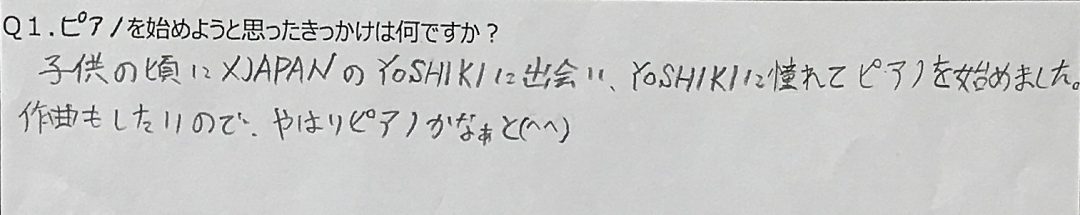 Q1.ピアノを始めようと思ったきっかけは何ですか?
子供の頃にXJAPANのYOSHIKIに出会い、YOSHIKIに憧れてピアノを始めました。
作曲もしたいので、やはりピアノかなぁと(^^)